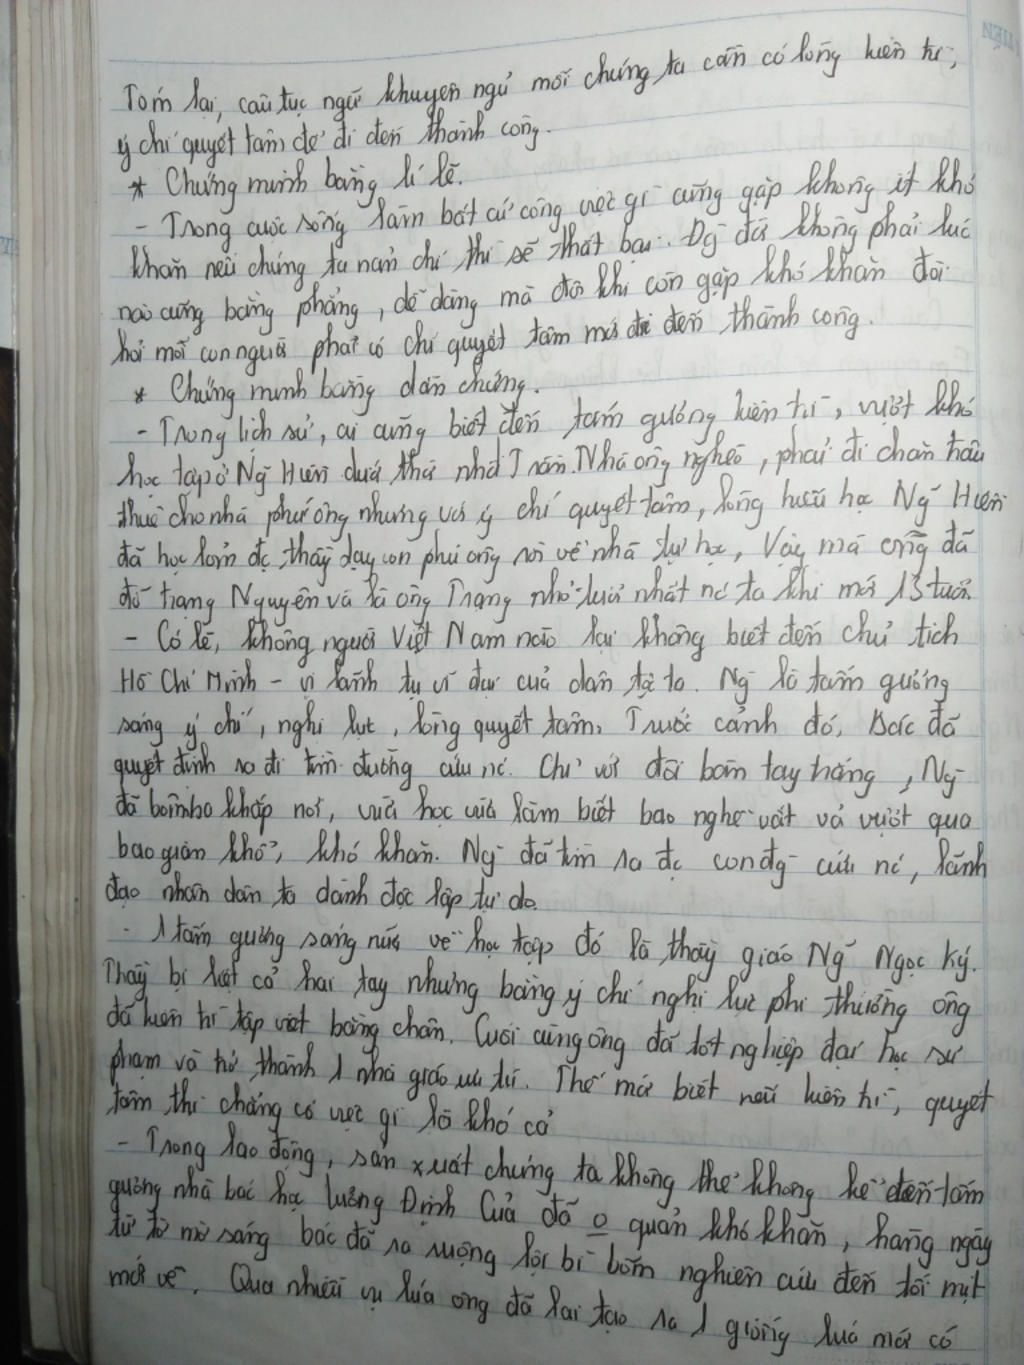 Tóm lại, câu tục ngữ khuyên ngủ mỗi chúng ta cần có lòng kiên trì,
ý chí quyết tâm để đi đến thành công.
* Chứng minh bằng lí lẽ.
- Trong cuộc sống làm bất cứ công việc gì cũng gặp không ít khó
khăn nếu chúng ta nản chí thì sẽ thất bại. Đg đời không phải lúc
nào cũng bằng phẳng, dễ dàng mà đôi khi còn gặp khó khăn đòi
hỏi mỗi con người phải có chí quyết tâm mới đi đến thành công.
* Chứng minh bằng dẫn chứng.
- Trong lịch sử, ai cũng biết đến tấm gương kiên trì, vượt khó
học tập ở Ng~ Hiền dưới thời nhà Trần. Nhà ông nghèo, phải đi chăn trâu
thuê cho nhà phú ông nhưng với ý chí quyết tâm, lòng hiếu học Ng~ Hiền
đã học lỏm đc thầy dạy con phú ông rồi về nhà tự học, Vậy mà ông đã
đỗ trạng Nguyên và là ông Trạng nhỏ tuổi nhất nc ta khi mới 13 tuổi.
- Có lẽ, không người Việt Nam nào lại không biết đến chủ tịch
Hồ Chí Minh - vị lãnh tụ vĩ đại của dân tộc ta. Ng là tấm gương
sáng ý chí, nghị lực, lòng quyết tâm. Trước cảnh đó, Bác đã
quyết định ra đi tìm đường cứu nc. Chỉ với đôi bàn tay trắng, Ng
đã bôn ba khắp nơi, vừa học vừa làm biết bao nghề vất vả vượt qua
bao gian khổ, khó khăn. Ng đã tìm ra đc con đg cứu nc, lãnh
đạo nhân dân ta dành độc lập tự do.
- 1 tấm gương sáng nữa về học tập đó là thầy giáo Ng~ Ngọc Ký.
Thầy bị liệt cả hai tay nhưng bằng ý chí nghị lực phi thường ông
đã kiên trì tập viết bằng chân. Cuối cùng ông đã tốt nghiệp đại học sư
phạm và trở thành 1 nhà giáo ưu tú. Thế mới biết nếu kiên trì, quyết
tâm thì chẳng có việc gì là khó cả
- Trong lao động, sản xuất chúng ta không thể không kể đến tấm
gương nhà bác học Lương Định Của đã o quản khó khăn, hàng ngày
từ tờ mờ sáng bác đã ra ruộng lội bì bõm nghiên cứu đến tối mịt
mới về. Qua nhiều vụ lúa ông đã lai tạo ra 1 giống lúa mới có